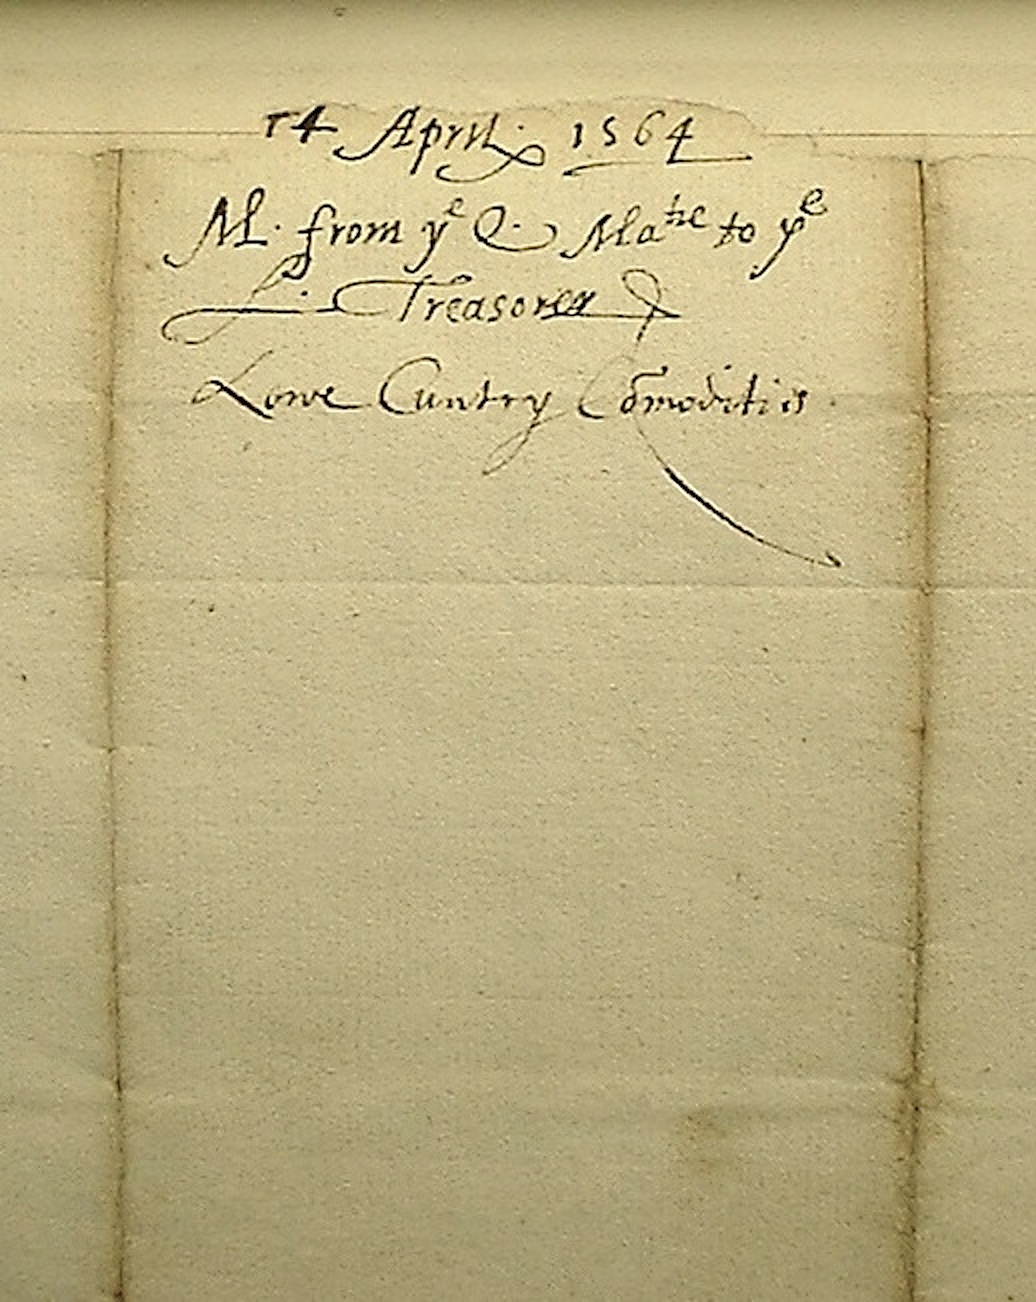 14 April 1564
M. from yᵉ Q. Maᵗⁱᵉ to yᵉ
L. Treasorer
Lowe Cuntry Cōmodities